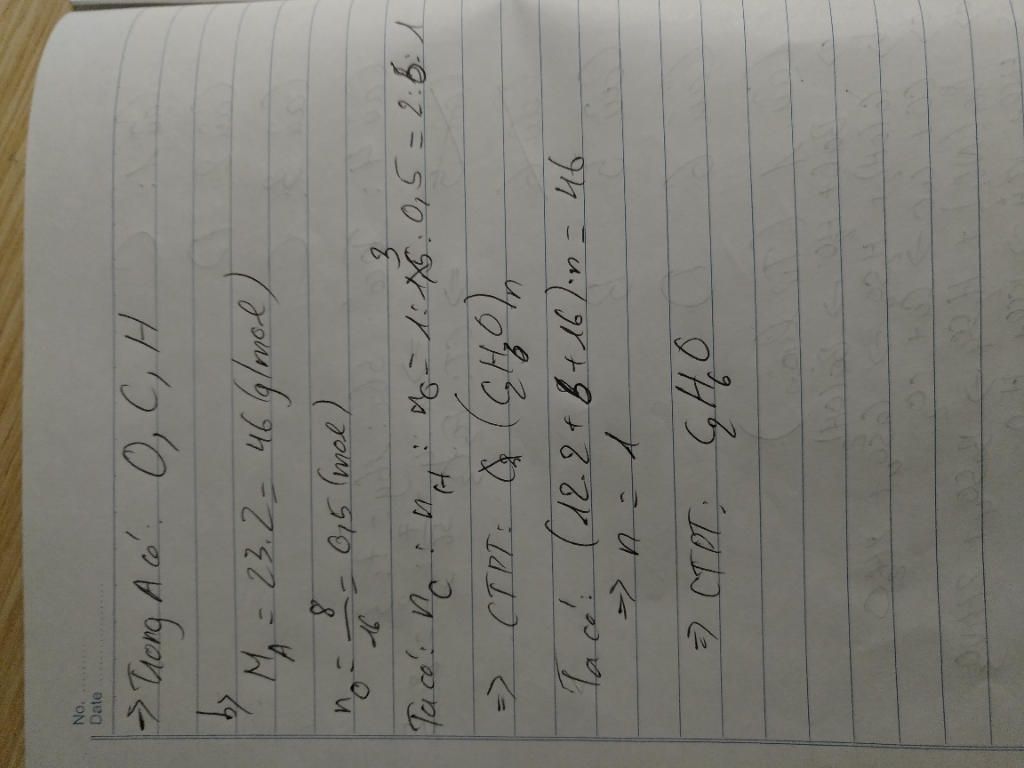 No.
Date
→ Trong A có: O, C, H
b)
M_A = 23.2 = 46 (g/mol)
n_O = 8/16 = 0,5 (mol)
Ta có: n_C : n_H : n_O = 1 : 3 : 0,5 = 2 : 6 : 1
=> CTPT: (C₂H₆O)n
Ta có: (12.2 + 6 + 16).n = 46
=> n = 1
=> CTPT: C₂H₆O